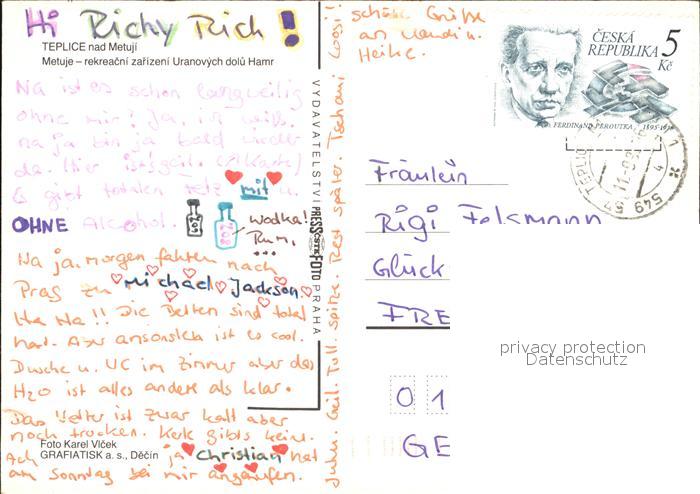 Hi Richy Rich!
TEPLICE nad Metují
Metuje – rekreační zařízení Uranových dolů Hamr
Na ist es schon langweilig
ohne mir? Ja, ich weiß.
na ja bin ja bald wieder
da. Hier ist's geil. (s. Karte)
Es gibt totalen mit u.
OHNE Alcohol.
Wodka!
Rum,
...
Na ja, morgen fahren nach
Prag zu Michael Jackson.
Ha Ha!! Die Betten sind total
hart. Aber ansonsten ist es cool.
Dusche u. WC im Zimmer aber das
H2O ist alles andere als klar.
Das Wetter ist zwar kalt aber
noch trocken. Kerle gibts keine.
Ach ja Christian hat
am Sonntag bei mir angerufen.
Foto Karel Vlček
GRAFIATISK a. s., Děčín
VYDAVATELSTVÍ PRESSFOTO PRAHA
Geil. Toll. spitze. Rest später. Tschaui
schöne Grüße
an u.
Heike.
ČESKÁ
REPUBLIKA 5
Kč
FERDINAND PEROUTKA 1895-1978
549 57
Fräulein
Rigi Folkmann
Glück
FRE
01
GE
privacy protection
Datenschutz